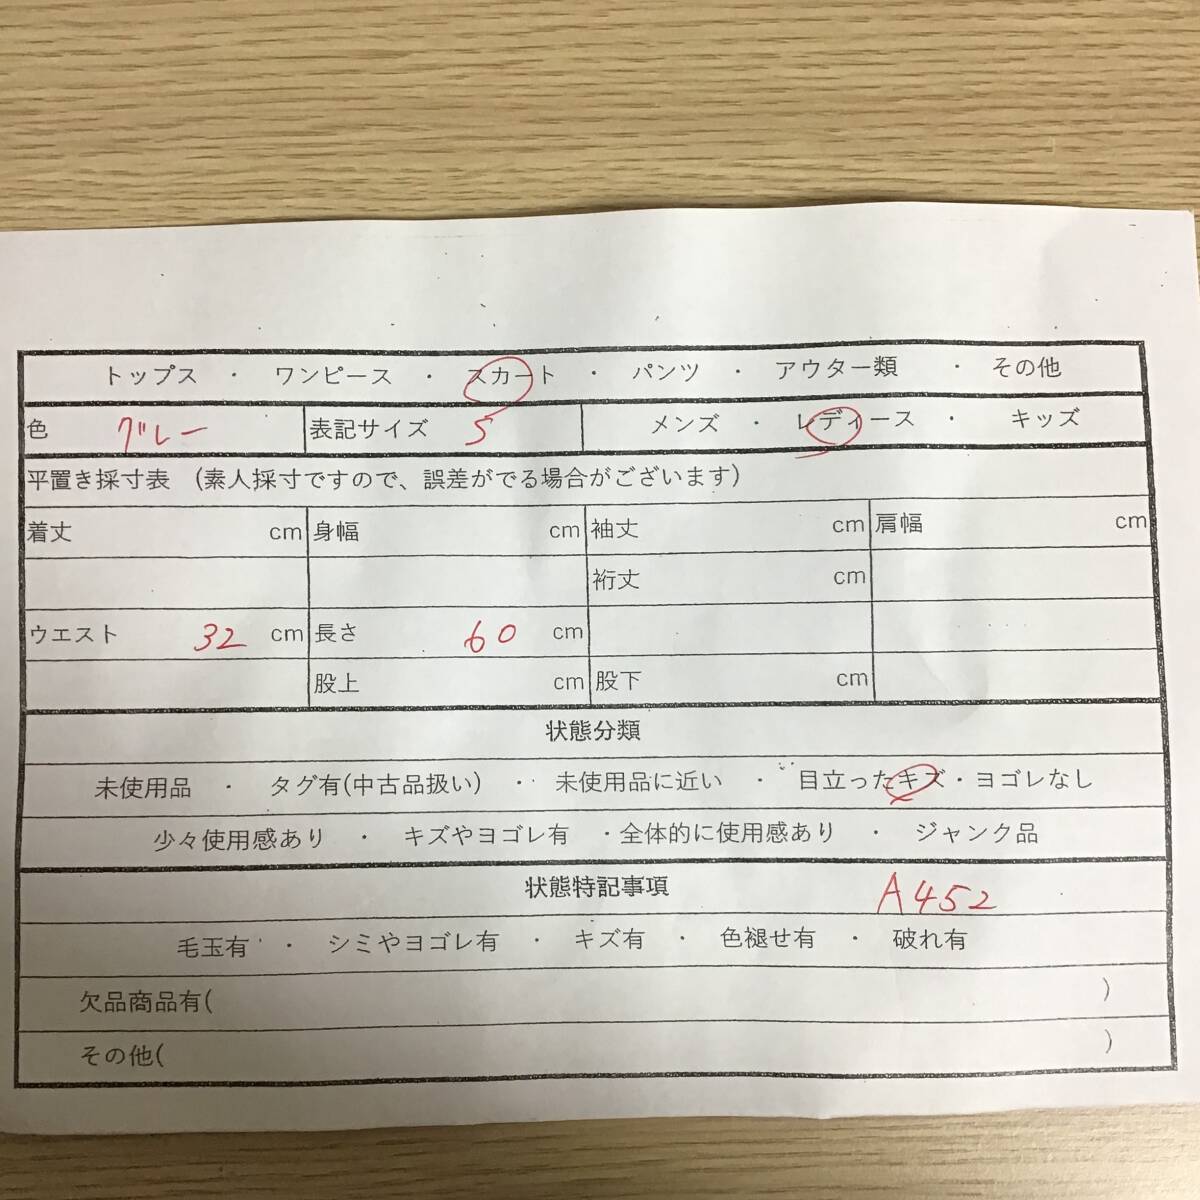 トップス ・ ワンピース ・ スカート ・ パンツ ・ アウター類 ・ その他
色 グレー 表記サイズ S メンズ ・ レディース ・ キッズ
平置き採寸表 (素人採寸ですので、誤差がでる場合がございます)
着丈 cm 身幅 cm 袖丈 cm 肩幅 cm
裄丈 cm
ウエスト 32 cm 長さ 60 cm
股上 cm 股下 cm
状態分類
未使用品 ・ タグ有(中古品扱い) ・ 未使用品に近い ・ 目立ったキズ・ヨゴレなし
少々使用感あり ・ キズやヨゴレ有 ・全体的に使用感あり ・ ジャンク品
状態特記事項 A452
毛玉有 ・ シミやヨゴレ有 ・ キズ有 ・ 色褪せ有 ・ 破れ有
欠品商品有( )
その他( )